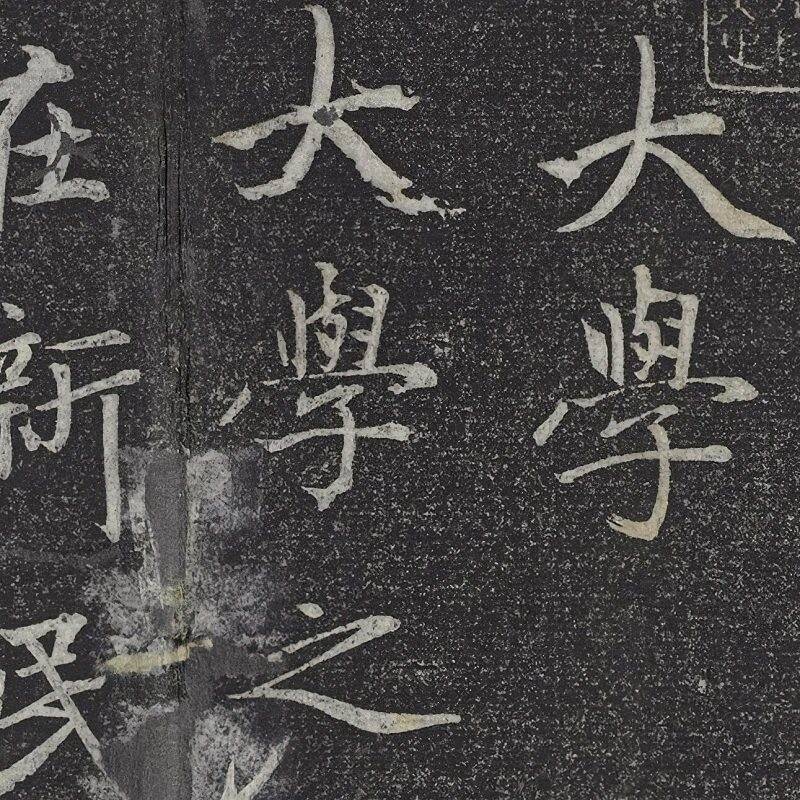 大學
大學之
在新民